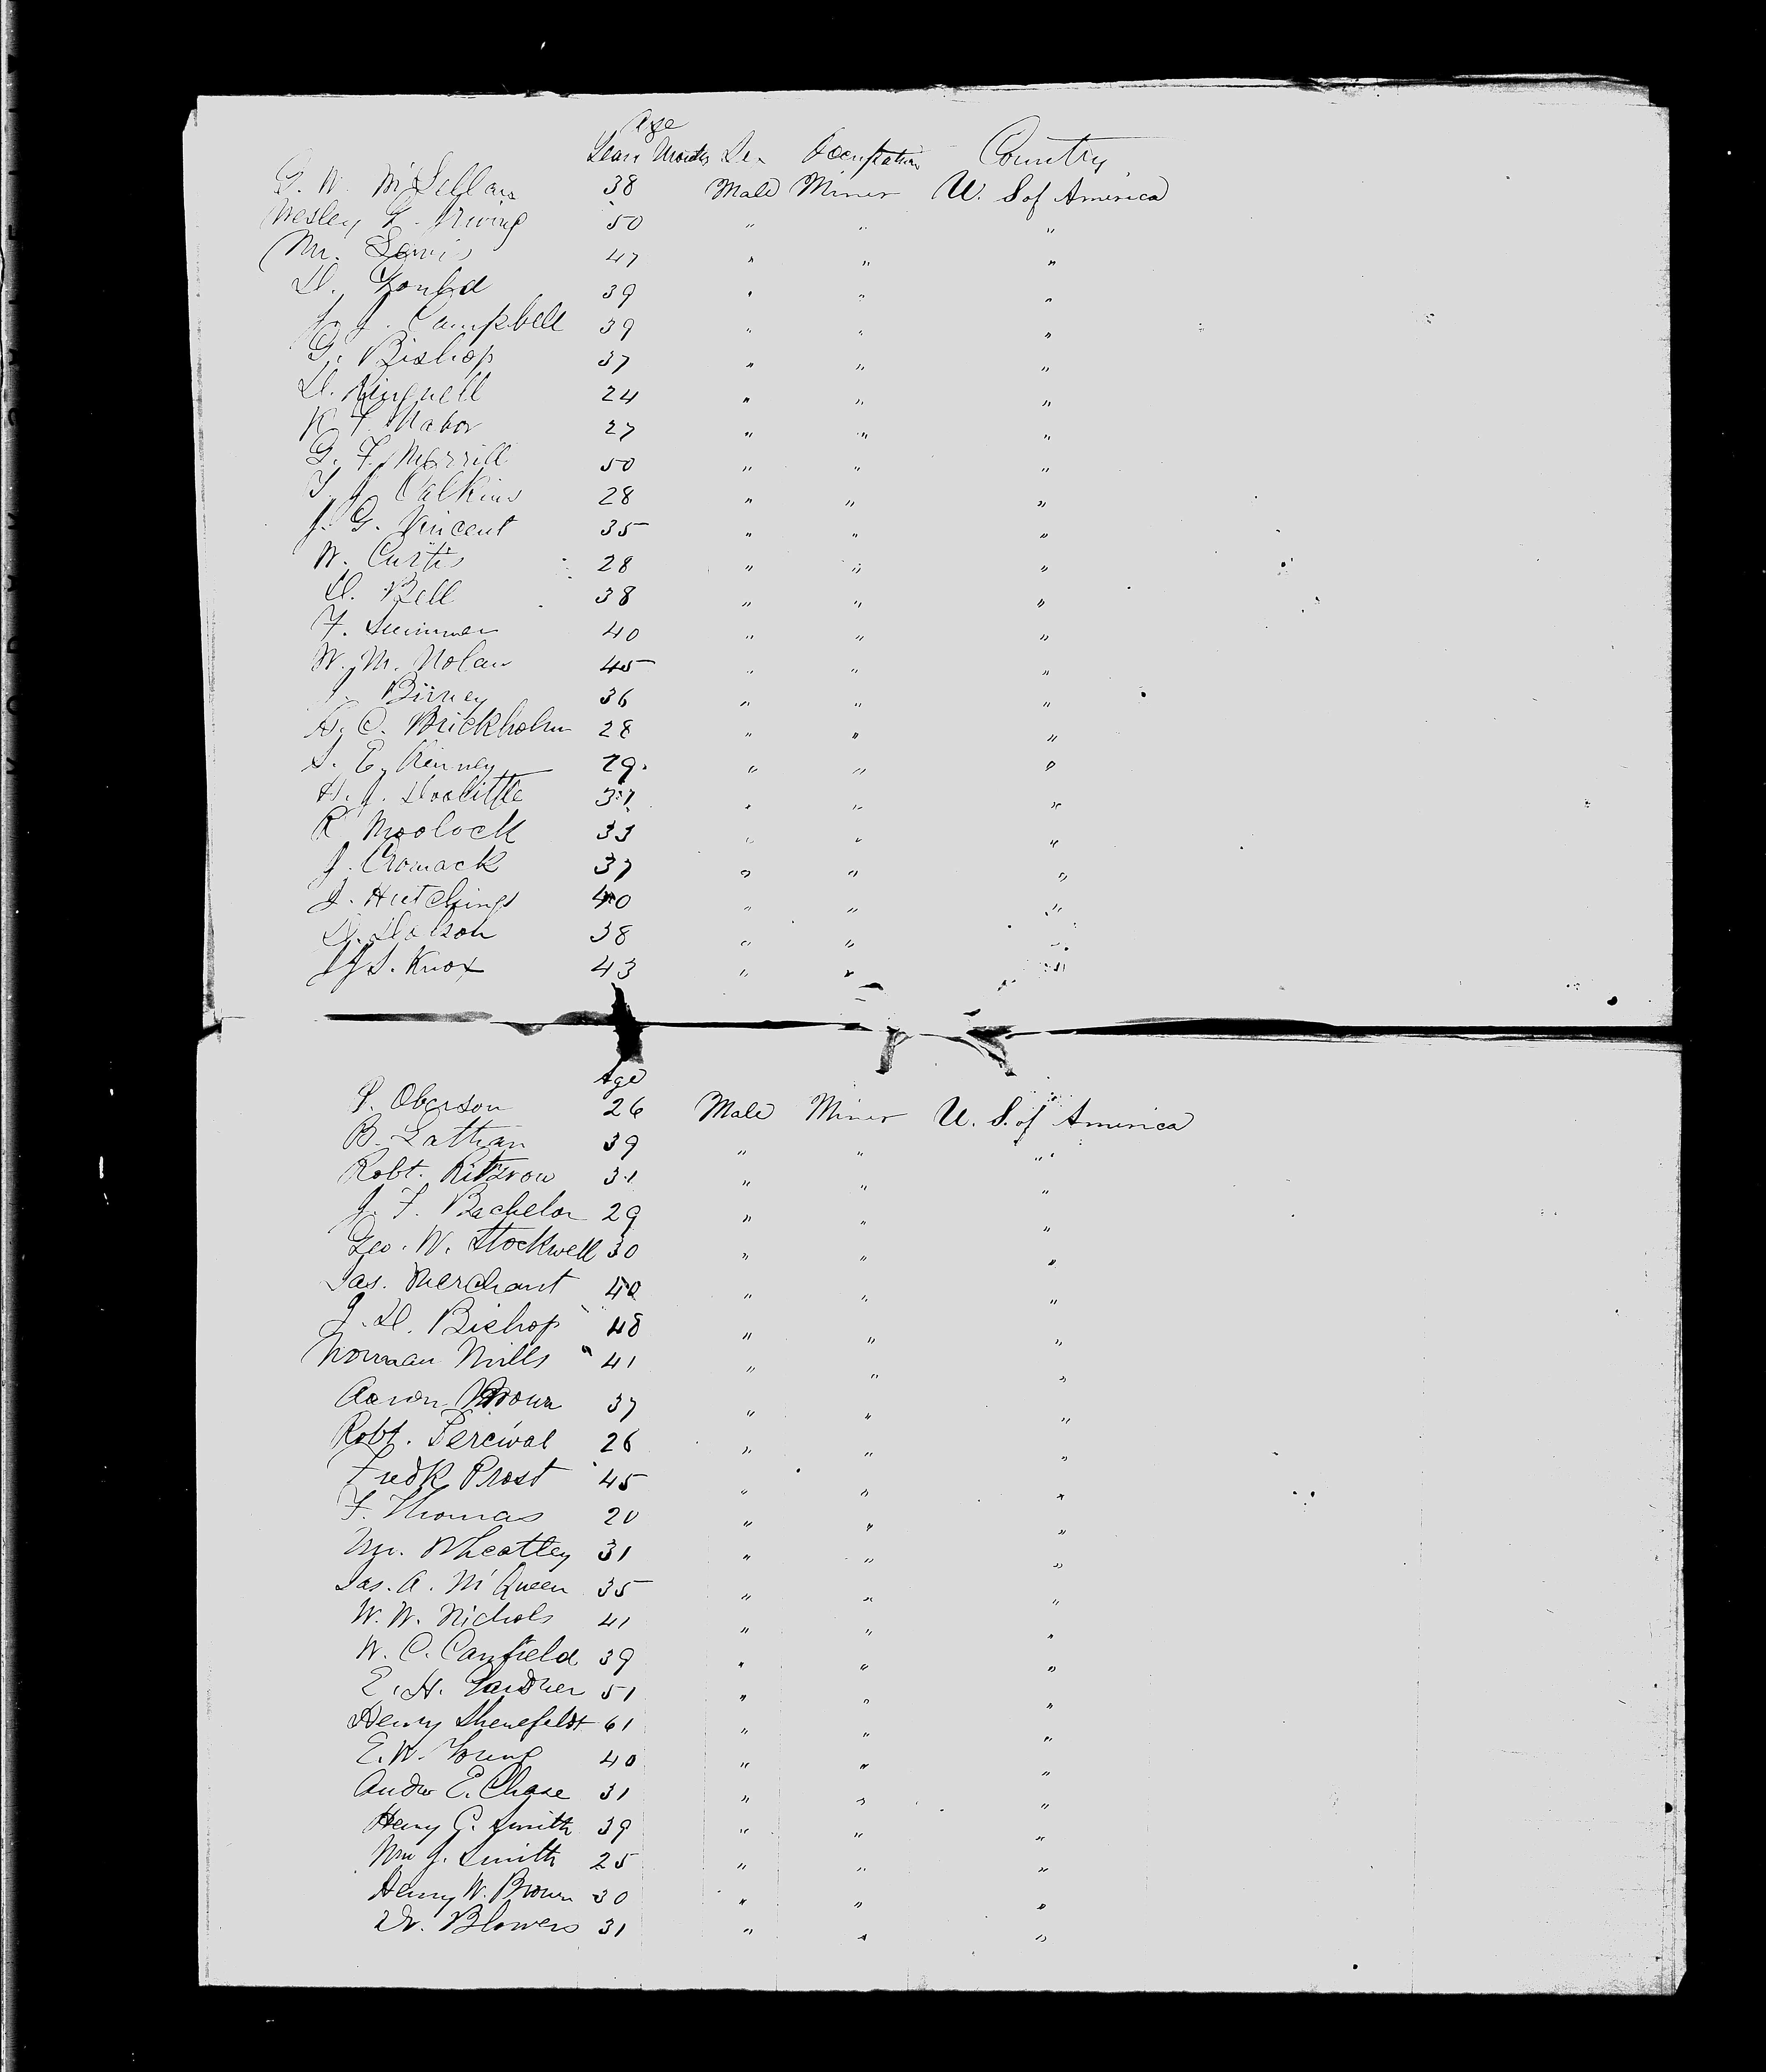 Age
Years Months Sex Occupation Country
G. W. McLellan 38 Male Miner U. S of America
Wesley G. Irving 50 " " "
Wm. Lewis 47 " " "
D. Gould 39 " " "
J. J. Campbell 39 " " "
G. Bishop 37 " " "
D. Ringnell 24 " " "
K. F. Nabor 27 " " "
G. F. Merrill 50 " " "
T. J. Calkins 28 " " "
J. G. Vincent 35 " " "
W. Curtis 28 " " "
D. Bell 38 " " "
F. Summer 40 " " "
W. M. Nolan 45 " " "
Birney 36 " " "
A. C. Brickholm 28 " " "
S. E. Kenney 29 " " "
H. J. Doolittle 31 " " "
R. Moolock 33 " " "
J. Cromack 37 " " "
J. Hutchings 40 " " "
D. Dolson 38 " " "
S. Knox 43 " " "
Age
P. Oberson 26 Male Miner U. S. of America
B. Lathian 39 " " "
Robt. 31 " " "
J. F. Bachelor 29 " " "
Geo. W. Stockwell 30 " " "
Jas. Merchant 40 " " "
J. D. Bishop 48 " " "
Norman Mills 41 " " "
Aaron Brown 37 " " "
Robt. Percival 26 " " "
Fredk Prost 45 " " "
F. Thomas 20 " " "
Wm. Wheatley 31 " " "
Jas. A. McQueen 35 " " "
W. W. Nichols 41 " " "
W. C. Canfield 39 " " "
E. H. Gardner 51 " " "
Henry Shenefeldt 61 " " "
E. W. Young 40 " " "
Andw E. Chase 31 " " "
Henry C. Smith 39 " " "
Wm J. Smith 25 " " "
Henry W. Brown 30 " " "
W. Blowers 31 " " "